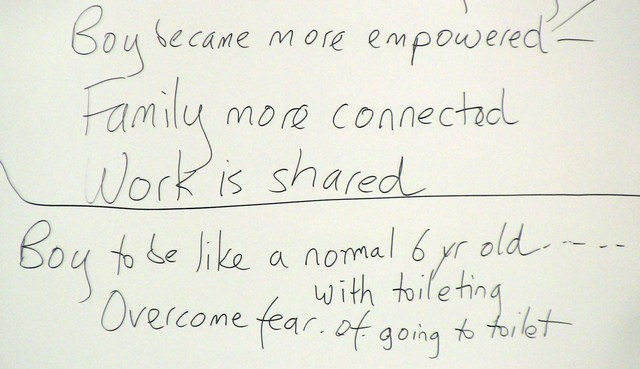 Boy became more empowered
Family more connected
Work is shared
Boy to be like a normal 6 yr old.----
with toileting
Overcome fear. of going to toilet